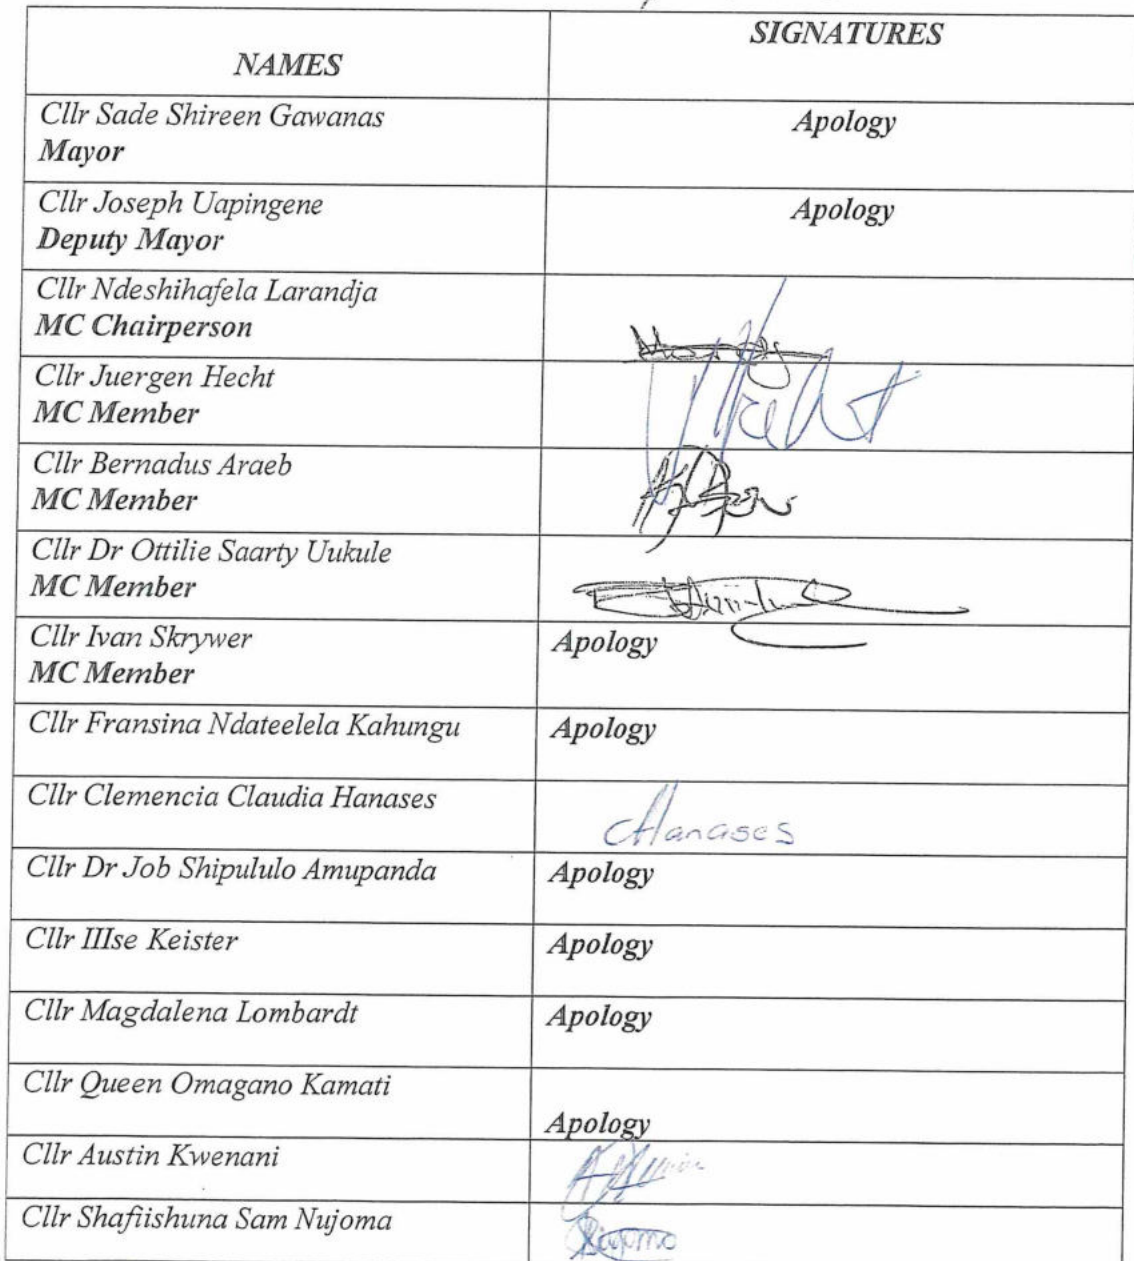 SIGNATURES
NAMES
Cllr Sade Shireen Gawanas
Apology
Mayor
Cllr Joseph Uapingene
Apology
Deputy Mayor
Cllr Ndeshihafela Larandja
MC Chairperson
Cllr Juergen Hecht
MC Member
Cllr Bernadus Araeb
MC Member
Cllr Dr Ottilie Saarty Uukule
MC Member
Cllr Ivan Skrywer
Apology
MC Member
Cllr Fransina Ndateelela Kahungu
Apology
Cllr Clemencia Claudia Hanases
CHanases
Cllr Dr Job Shipululo Amupanda
Apology
Cllr IIIse Keister
Apology
Cllr Magdalena Lombardt
Apology
Cllr Queen Omagano Kamati
Apology
Cllr Austin Kwenani
Cllr Shafiishuna Sam Nujoma